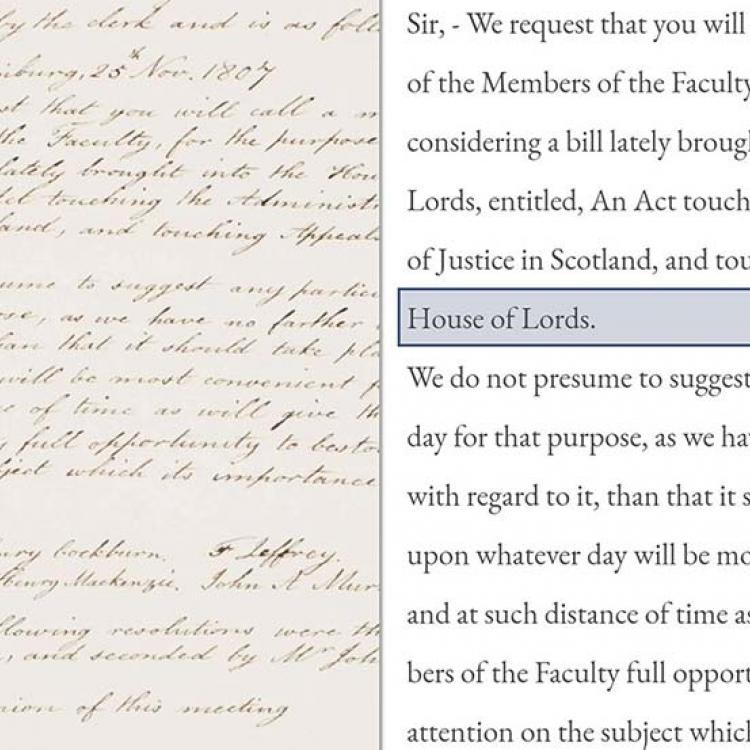 by the clerk and is as foll
nburg, 25th Nov. 1807
st that you will call a m
the Faculty, for the purpose
lately brought into the Hou
touching the Administr
land, and touching Appeals
ume to suggest any partic
ose, as we have no farther
han that it should take pla
will be most convenient f
ce of time as will give th
full opportunity to besto
ject which its importance
nry Cockburn. F Jeffrey.
Henry Mackenzie. John A Mur
llowing resolutions were th
, and seconded by Mr Joh
nion of this meeting
Sir, - We request that you will
of the Members of the Faculty
considering a bill lately broug
Lords, entitled, An Act touch
of Justice in Scotland, and tou
House of Lords.
We do not presume to suggest
day for that purpose, as we hav
with regard to it, than that it s
upon whatever day will be mo
and at such distance of time as
bers of the Faculty full opport
attention on the subject which